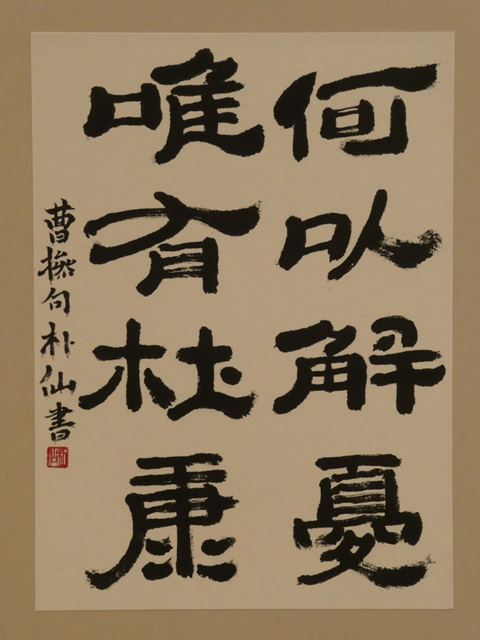 何以解憂
唯有杜康
曹操句朴仙書